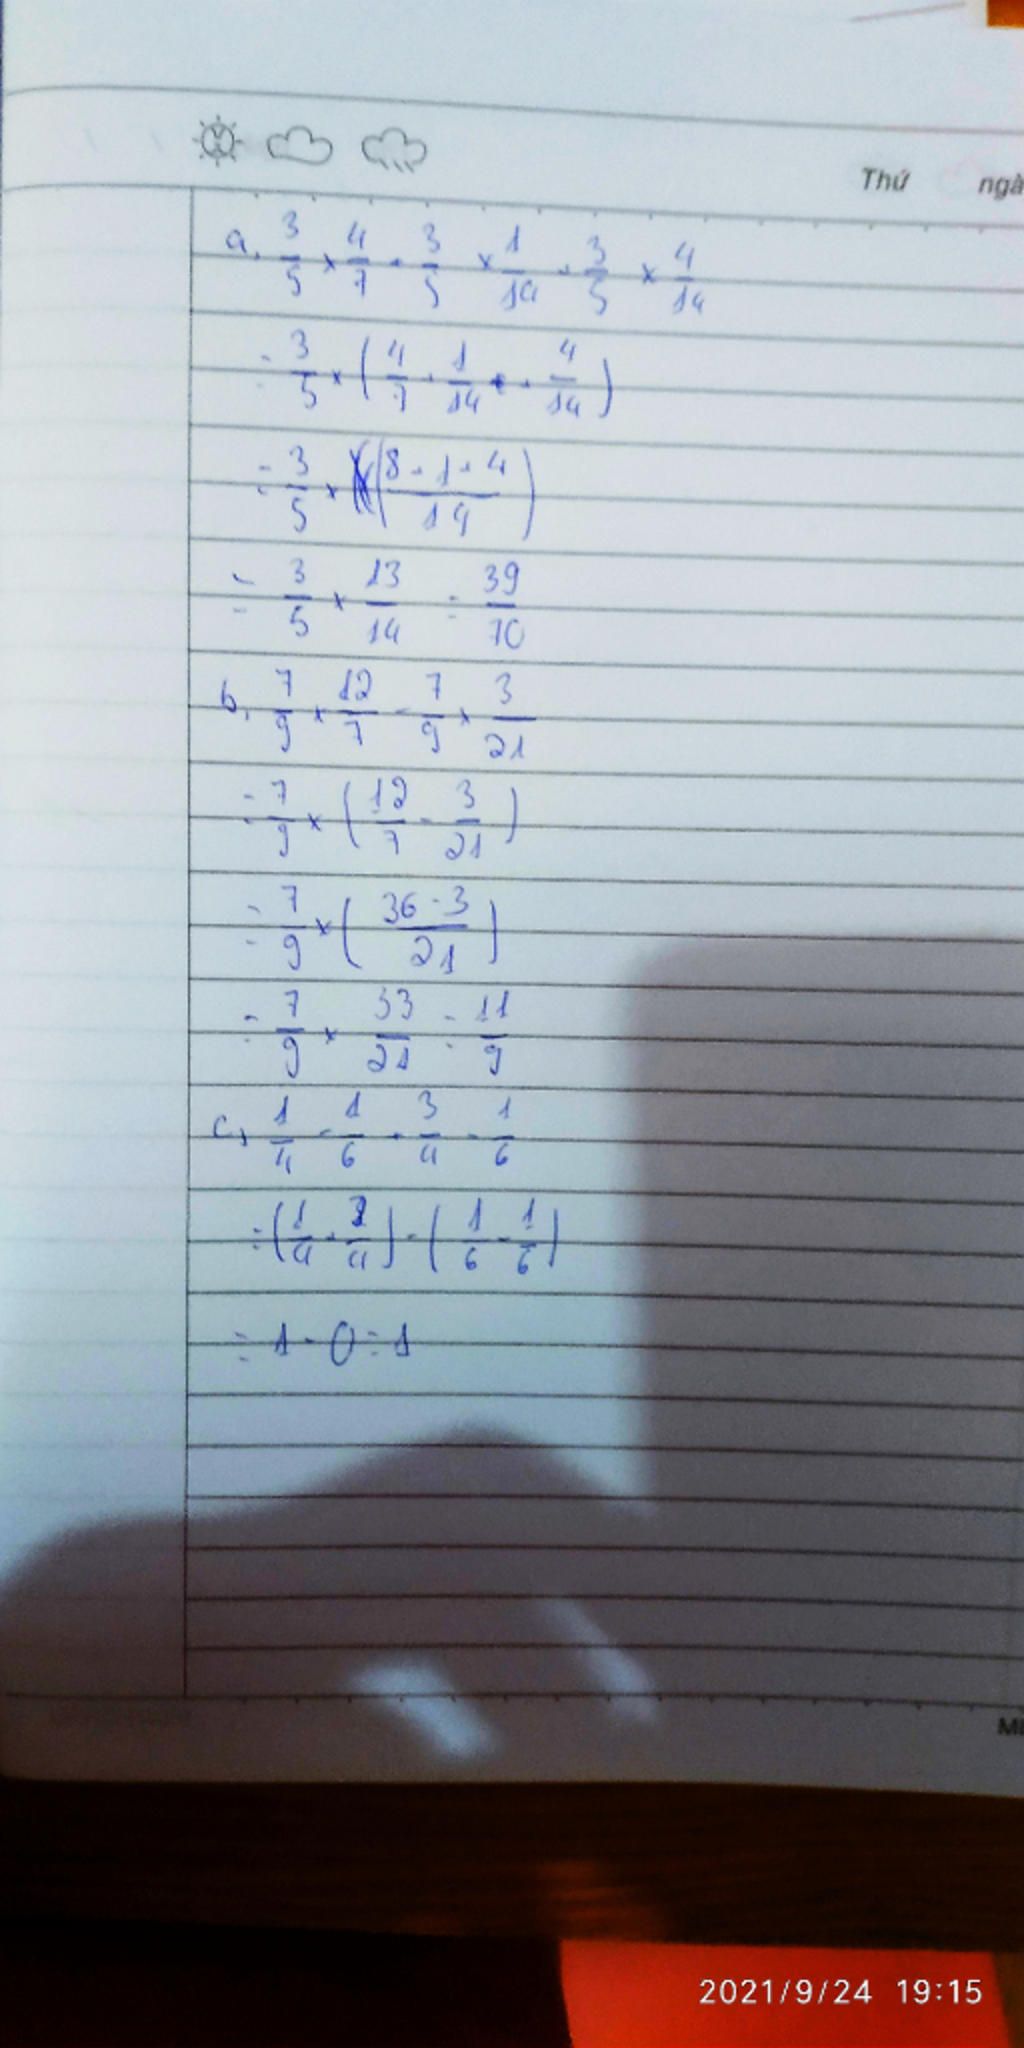 Thứ ngà
a, 3/5 × 4/7 + 3/5 × 1/14 + 3/5 × 4/14
= 3/5 × (4/7 + 1/14 + 4/14)
= 3/5 × ((8 + 1 + 4)/14)
= 3/5 × 13/14 = 39/70
b, 7/9 × 12/7 - 7/9 × 3/21
= 7/9 × (12/7 - 3/21)
= 7/9 × ((36 - 3)/21)
= 7/9 × 33/21 = 11/9
c, 1/4 - 1/6 + 3/4 - 1/6
= (1/4 + 3/4) - (1/6 - 1/6)
= 1 - 0 = 1
2021/9/24 19:15